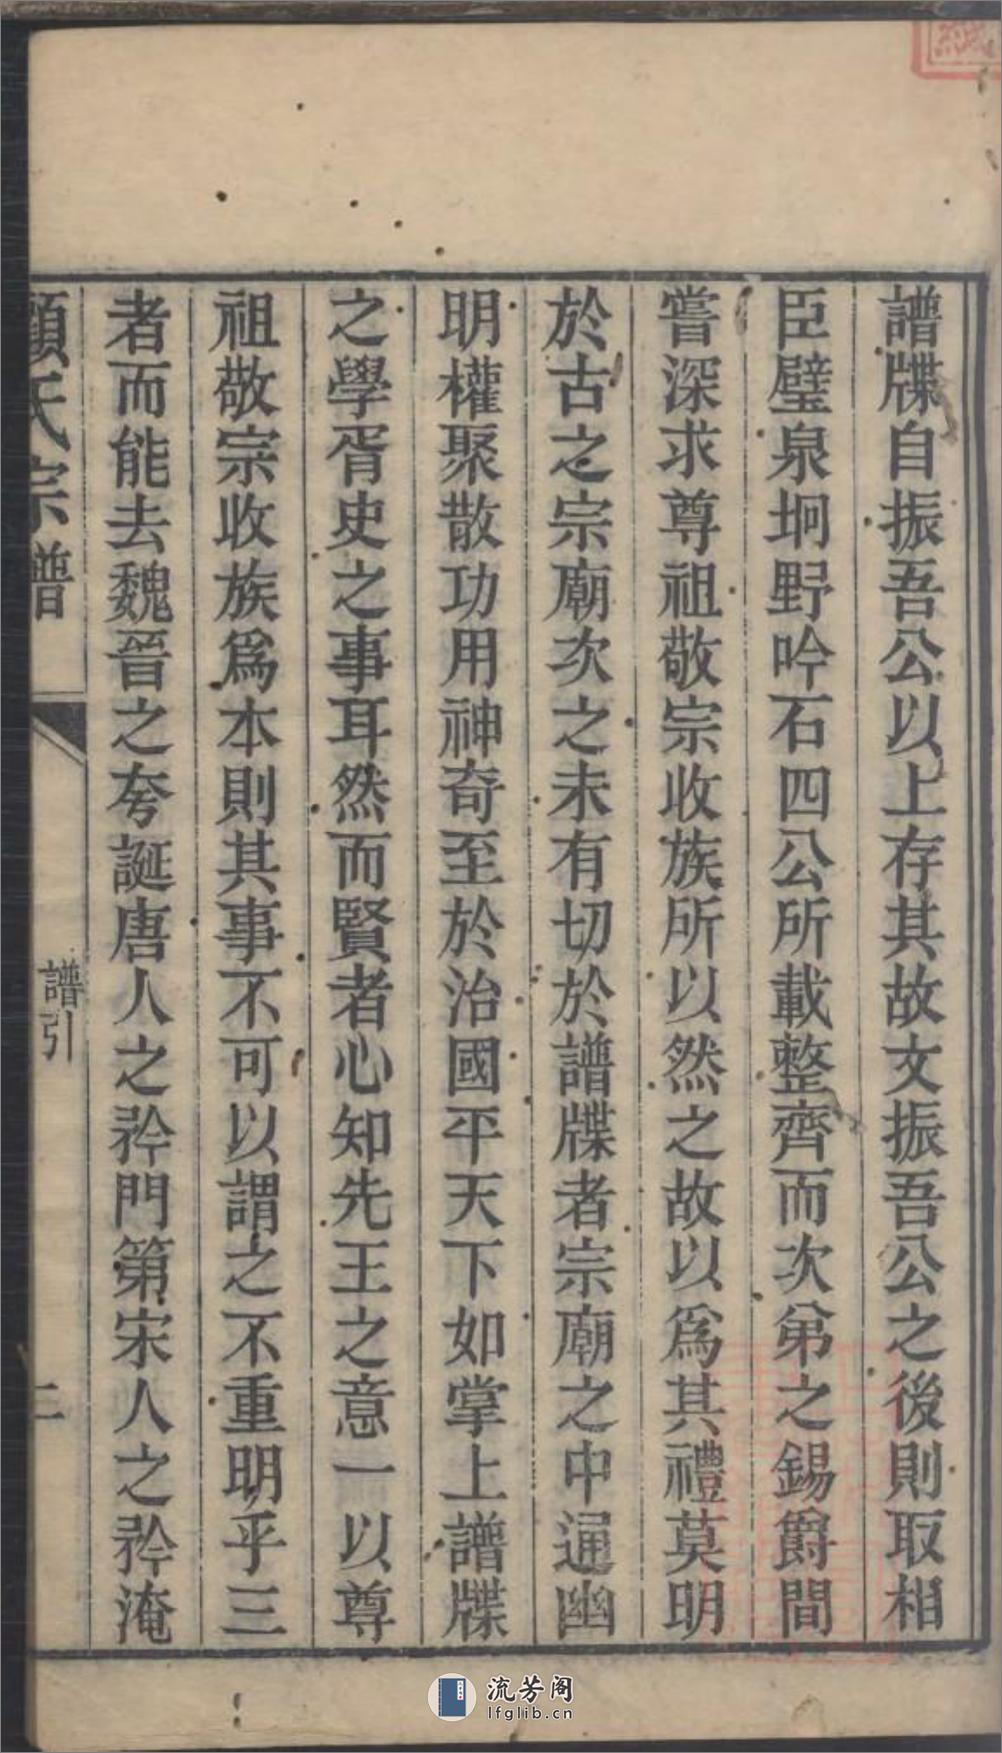 譜牒自振吾公以上存其故文振吾公之後則取相
臣璧泉坰野吟石四公所載整齊而次弟之錫爵間
嘗深求尊祖敬宗收族所以然之故以爲其禮莫明
於古之宗廟次之未有切於譜牒者宗廟之中通幽
明權聚散功用神奇至於治國平天下如掌上譜牒
之學胥史之事耳然而賢者心知先王之意一以尊
祖敬宗收族爲本則其事不可以謂之不重明乎三
者而能去魏晉之夸誕唐人之矜門第宋人之矜淹
顧氏宗譜
譜引
二
流芳阁
lfglib.cn